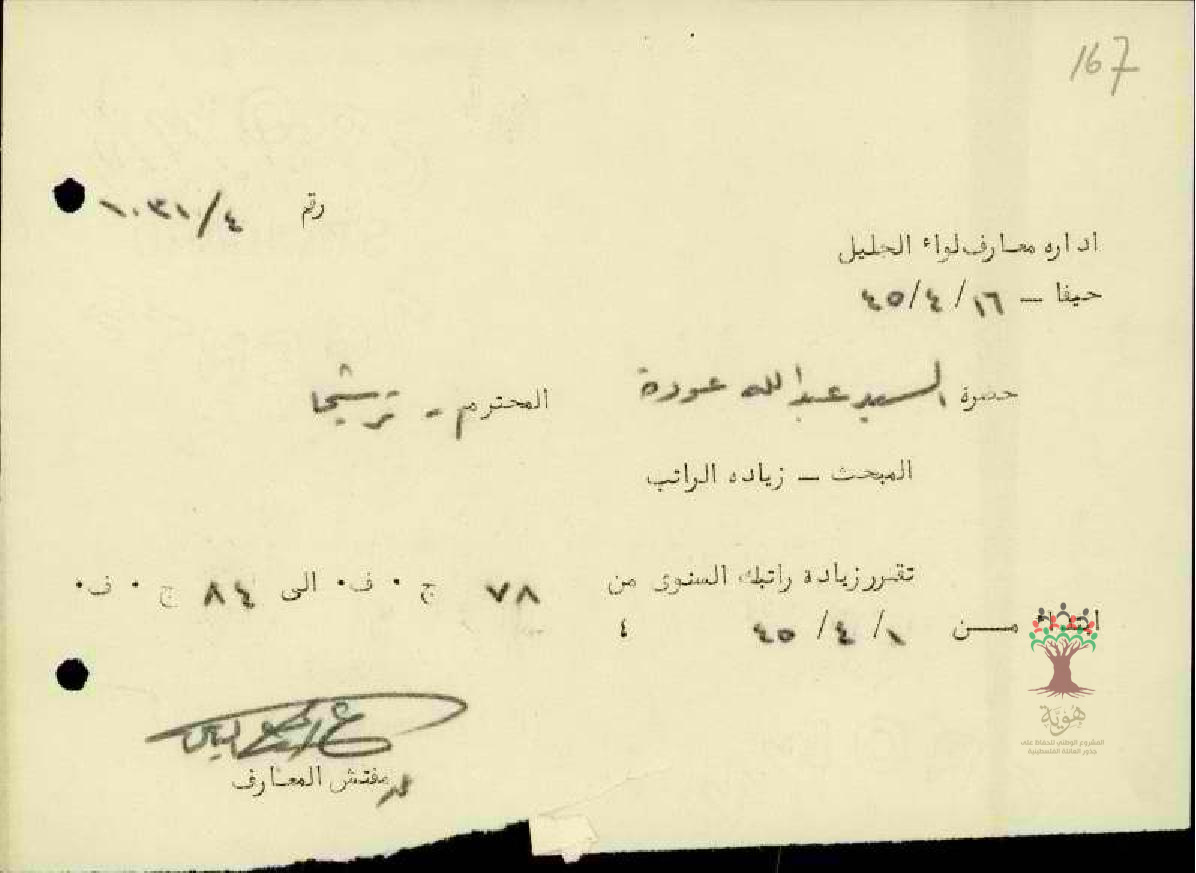 167
رقم ١٠٣١/٤
اداره معارف لواء الجليل
حيفا – ١٦/٤/٤٥
حضرة السيد عبدالله عودة المحترم - ترشيحا
المبحث – زياده الراتب
تقرر زيادة راتبك السنوى من ٧٨ ج ٠ ف٠ الى ٨٤ ج ٠ ف٠
ابتداء مــن ١/٤/٤٥ ٤
مفتش المعارف
هُويَّة
المشروع الوطني للحفاظ على
جذور العائلة الفلسطينية